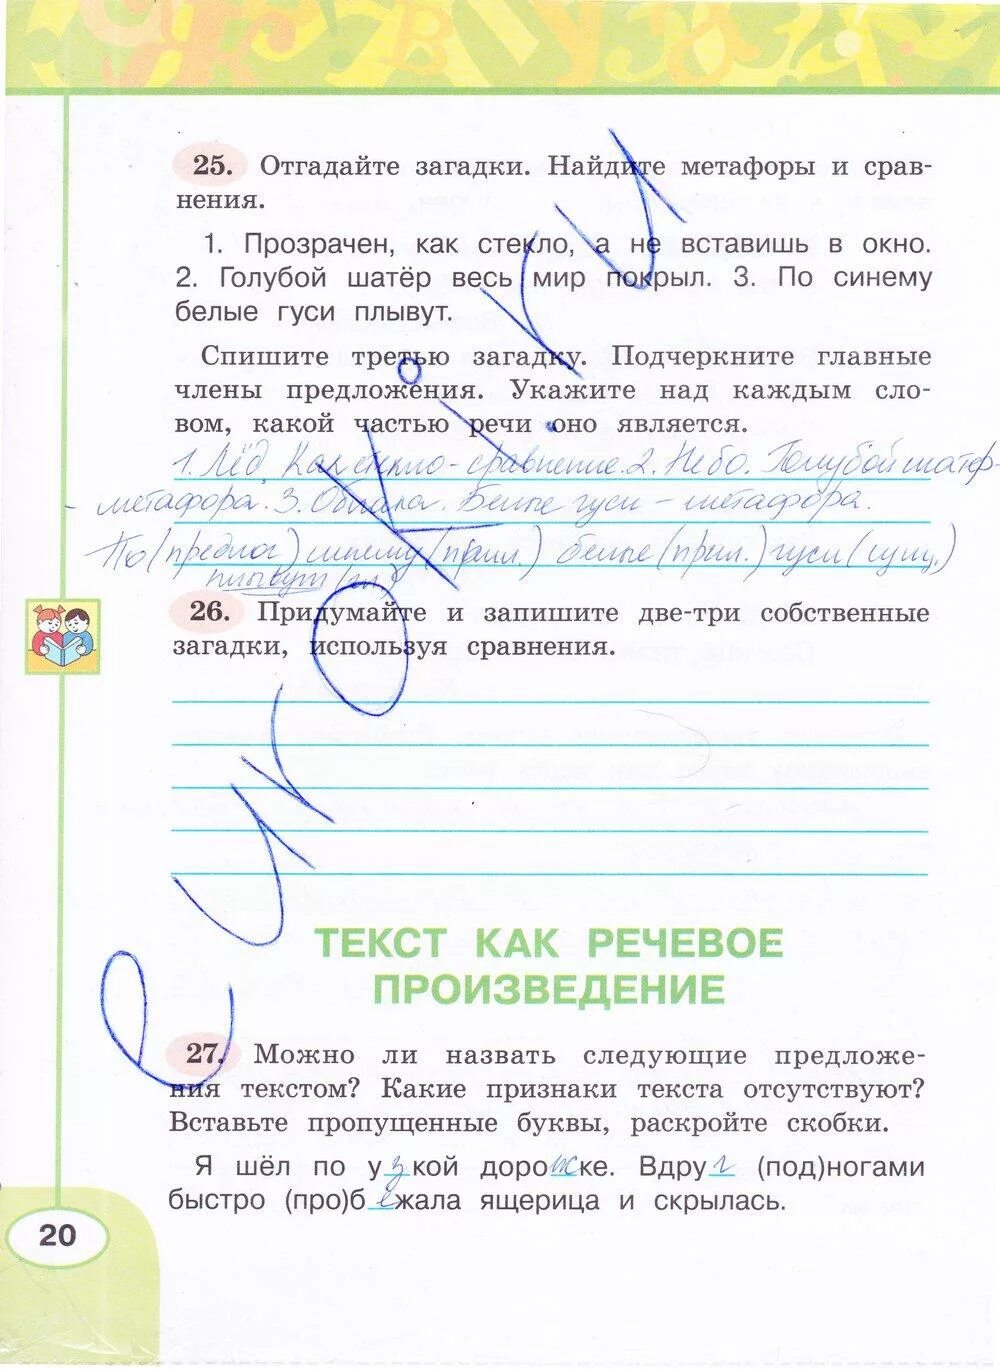 25. Отгадайте загадки. Найдите метафоры и срав-
нения.
1. Прозрачен, как стекло, а не вставишь в окно.
2. Голубой шатёр весь мир покрыл. 3. По синему
белые гуси плывут.
Спишите третью загадку. Подчеркните главные
члены предложения. Укажите над каждым сло-
вом, какой частью речи оно является.
1. Лёд. Как стекло - сравнение. 2. Небо. Голубой шатёр-
- метафора. 3. Облака. Белые гуси - метафора.
По (предлог) синему (прил.) белые (прил.) гуси (сущ.)
плывут (гл.)
26. Придумайте и запишите две-три собственные
загадки, используя сравнения.
ТЕКСТ КАК РЕЧЕВОЕ
ПРОИЗВЕДЕНИЕ
27. Можно ли назвать следующие предложе-
ния текстом? Какие признаки текста отсутствуют?
Вставьте пропущенные буквы, раскройте скобки.
Я шёл по узкой дорожке. Вдруг (под)ногами
быстро (про)бежала ящерица и скрылась.
20
еuroki.ru